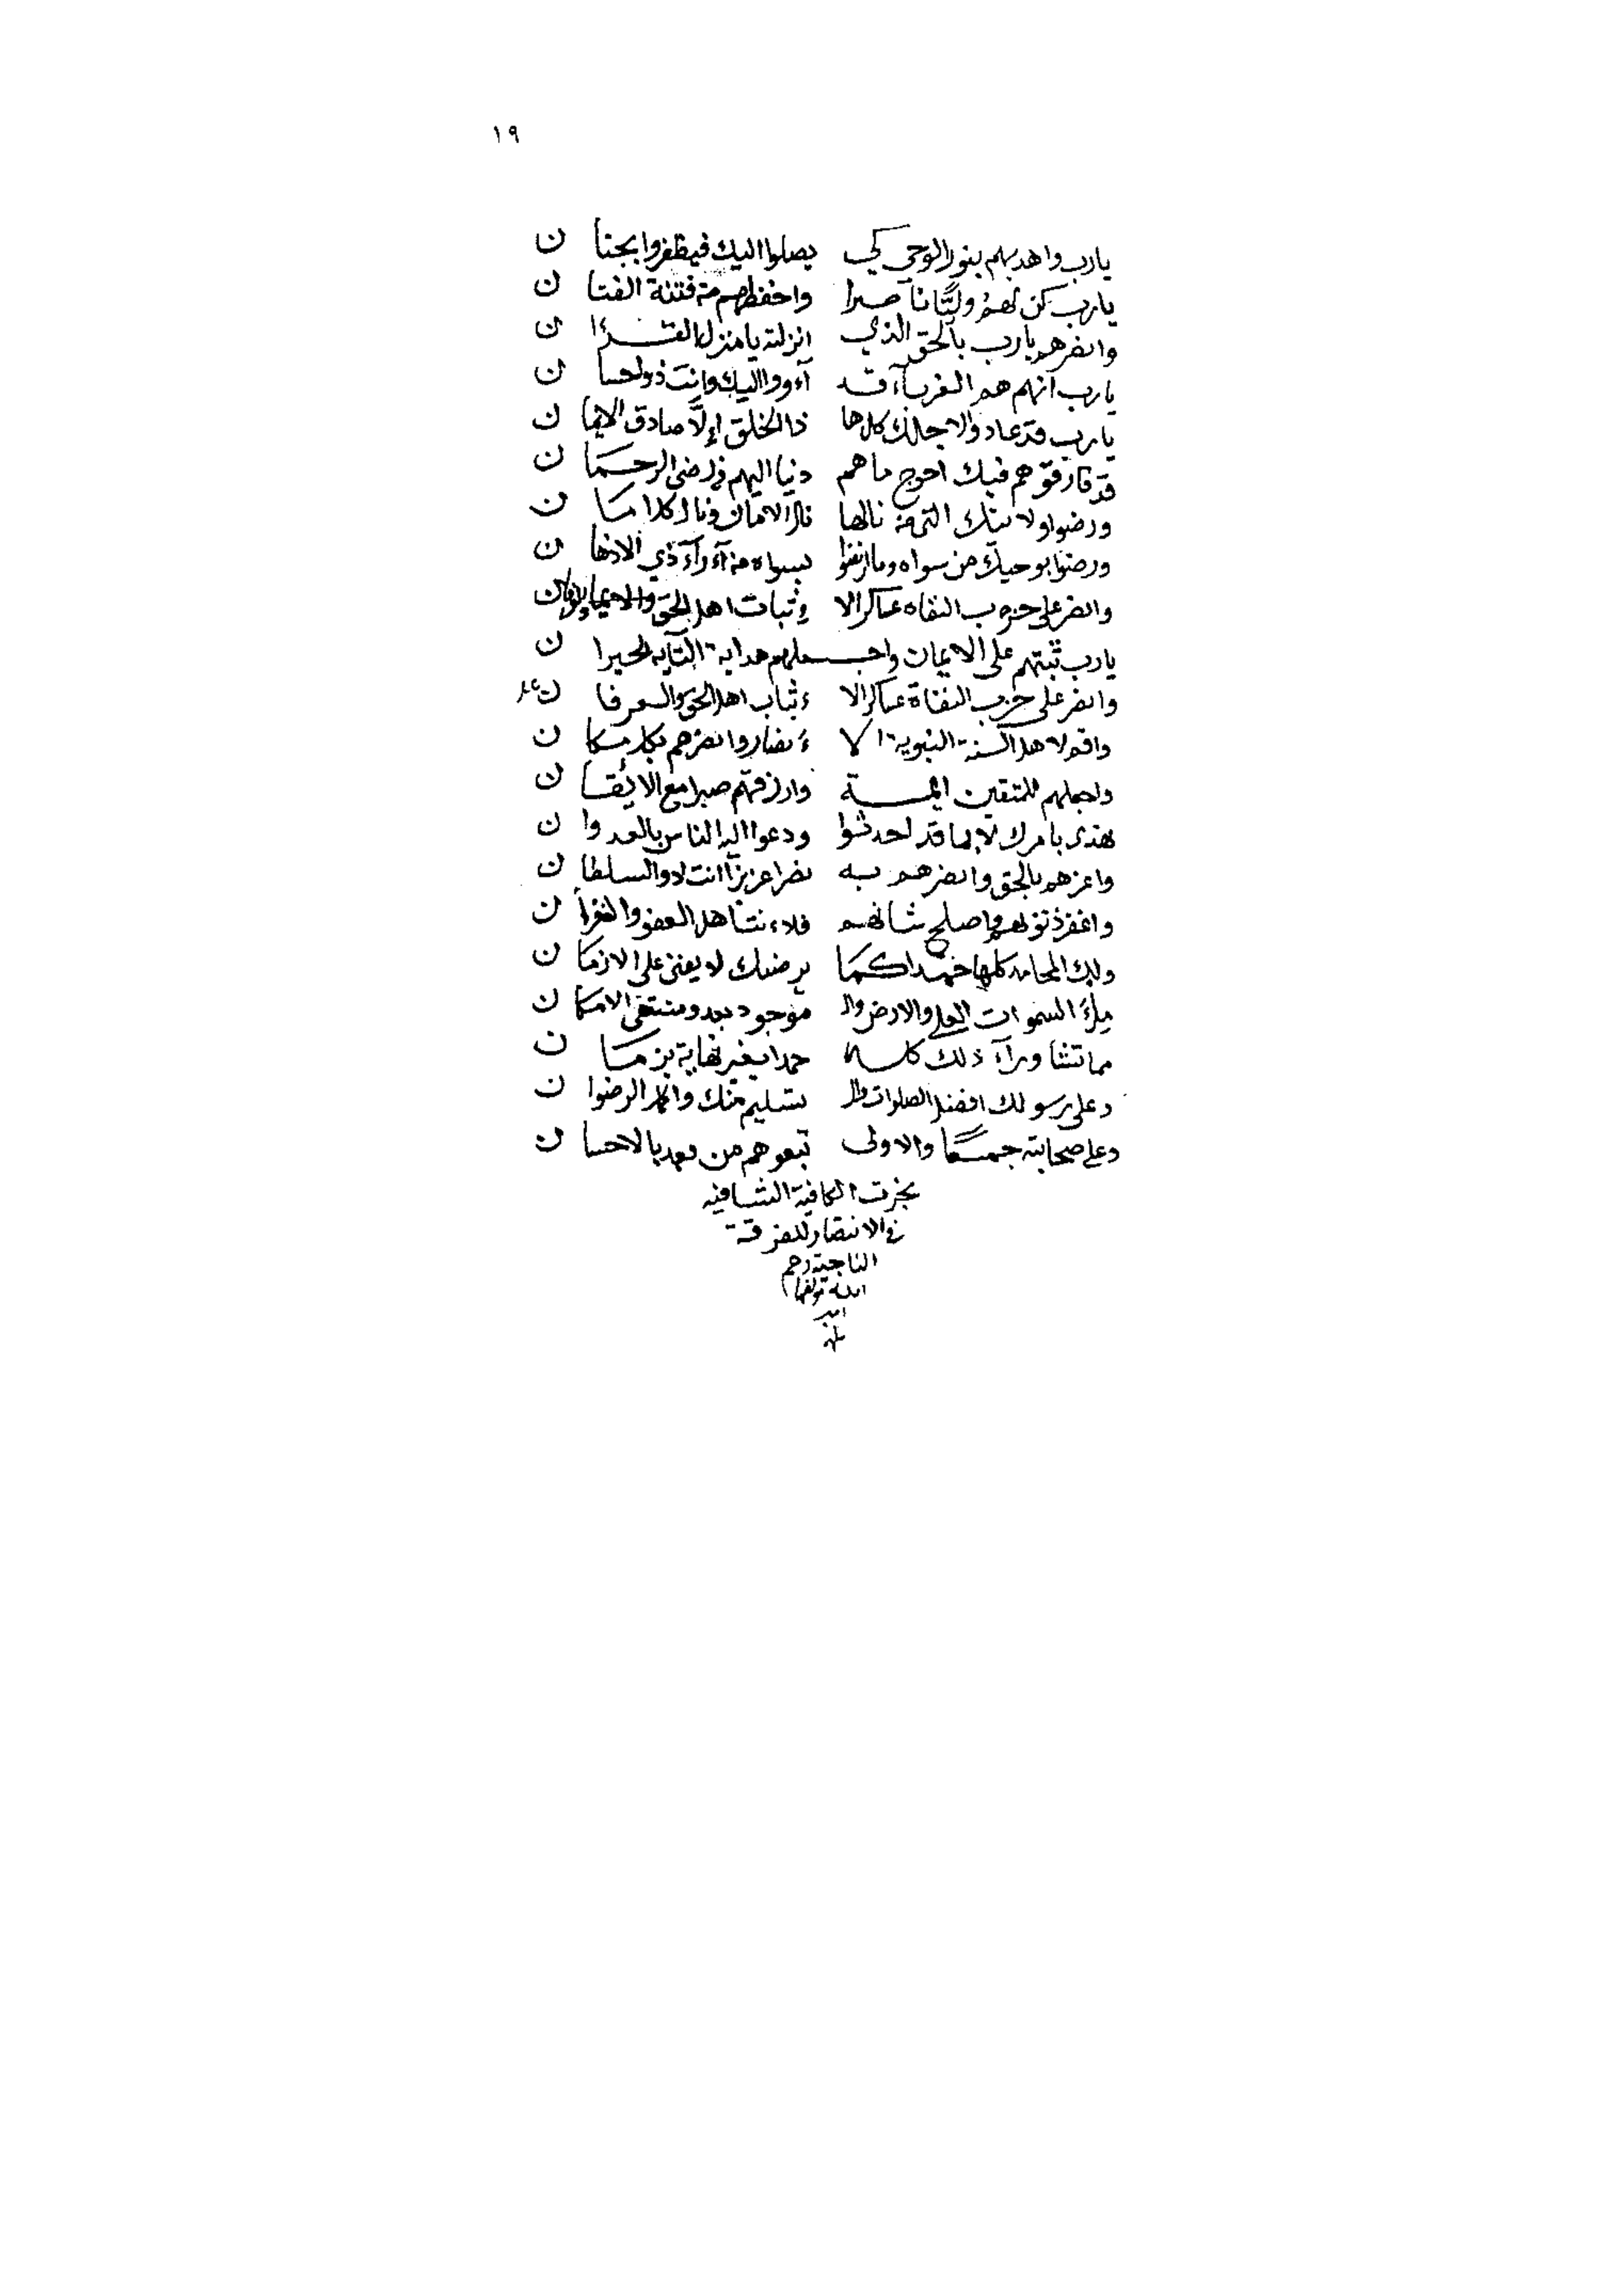 ١٩
يارب واهديهم بنور الوحي كي يصلوا اليك فيظفروا بجنان
يارب كن لهم وليًّا ناصرا واحفظهم من فتنة الفتان
وانصرهم يارب بالحق الذي انزلته يا منزل القرءان
يارب انهم هم الغرباء قد آووا اليك وانت ذو احسان
يارب قد عادوا لاجلك كل هاذا الخلق إلَّا صادق الايمان
قد فارقوهم فيك احوج ما هم دنيا اليهم في رضى الرحمان
ورضوا ولايتك التي من نالها نال الامان ونال كل امان
ورضوا بوحيك من سواه وما ارتضوا بسواه من آراء ذي الاذهان
وانصر على حزب النفاه عساكر الاثبات اهل الحق والايمان
يارب ثبتهم على الايمان واجعلهم هداية التآيه الحيران
وانصر على حزب النفاة عساكر الاثبات اهل الحق والعرفان
واقم لاهل السنة النبوية الانصار وانصرهم بكل مكان
واجعلهم للمتقين ايمة وارزقهم صبرا مع الايقان
تهدى بامرك لا بما قد احدثوا ودعوا اليه الناس بالعدوان
واعزهم بالحق وانصرهم به نصرا عزيزا انت ذو السلطان
واغفر ذنوبهم واصلح شانهم فلانت اهل العفو والغفران
ولك المحامد كلها حمدا كما يرضيك لا يفنى على الازمان
ملأ السموات العلى والارض والموجود بعد ومنتهى الامكان
مما تشا ورآء ذلك كله حمدا بغير نهاية بزمان
وعلى رسولك افضل الصلوات والتسليم منك واكمل الرضوان
وعلى صحابته جميعًا والاولى تبعوهم من بعد بالاحسان
نجزت الكافية الشافيه
في الانتصار للفرقة
الناجية رحم
الله مولفها
امين